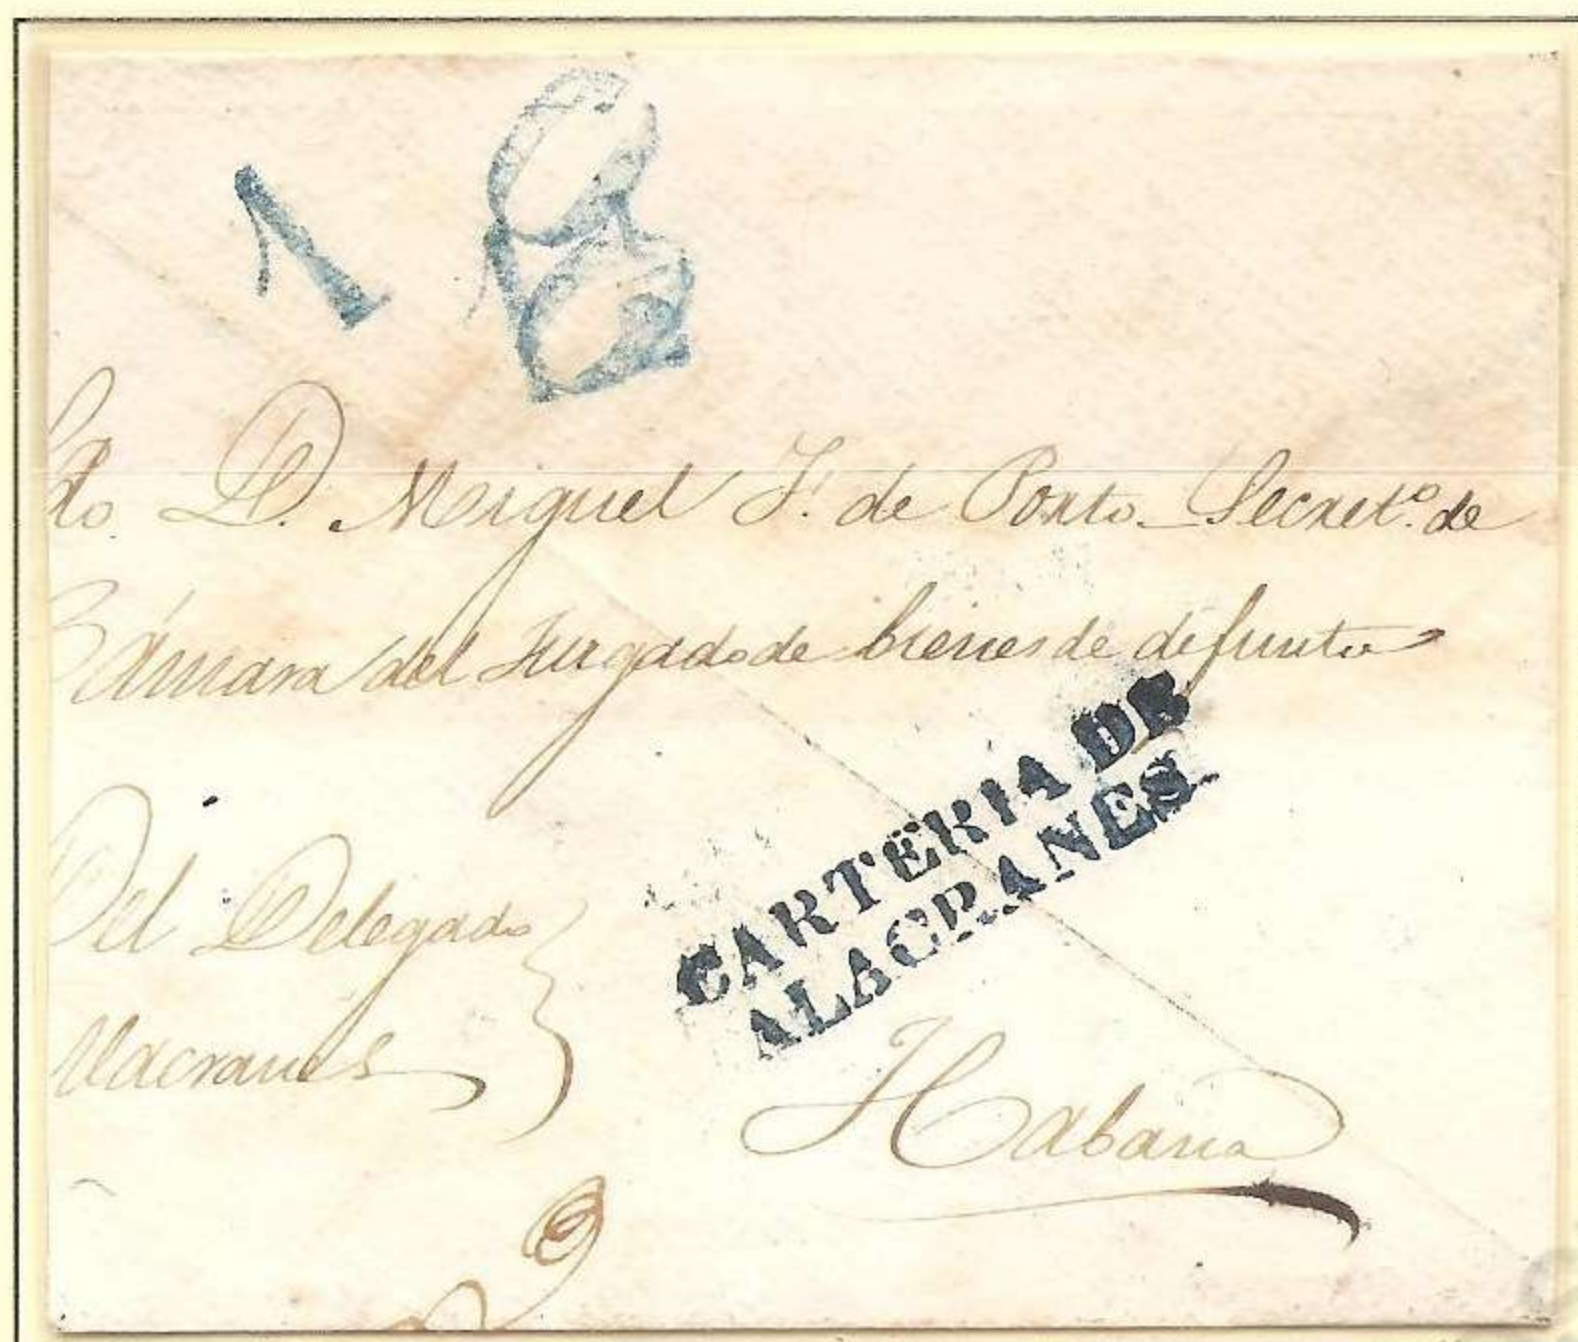 1
Ldo. D. Miguel F. de Porto Secret.º de
Cámara del Jurgado de bienes de difuntos
CARTERIA DE
ALACRANES
Del Delegado
Alacranes
Habana